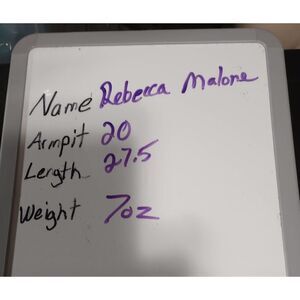 Name Rebecca Malone
Armpit 20
Length 27.5
Weight 7oz